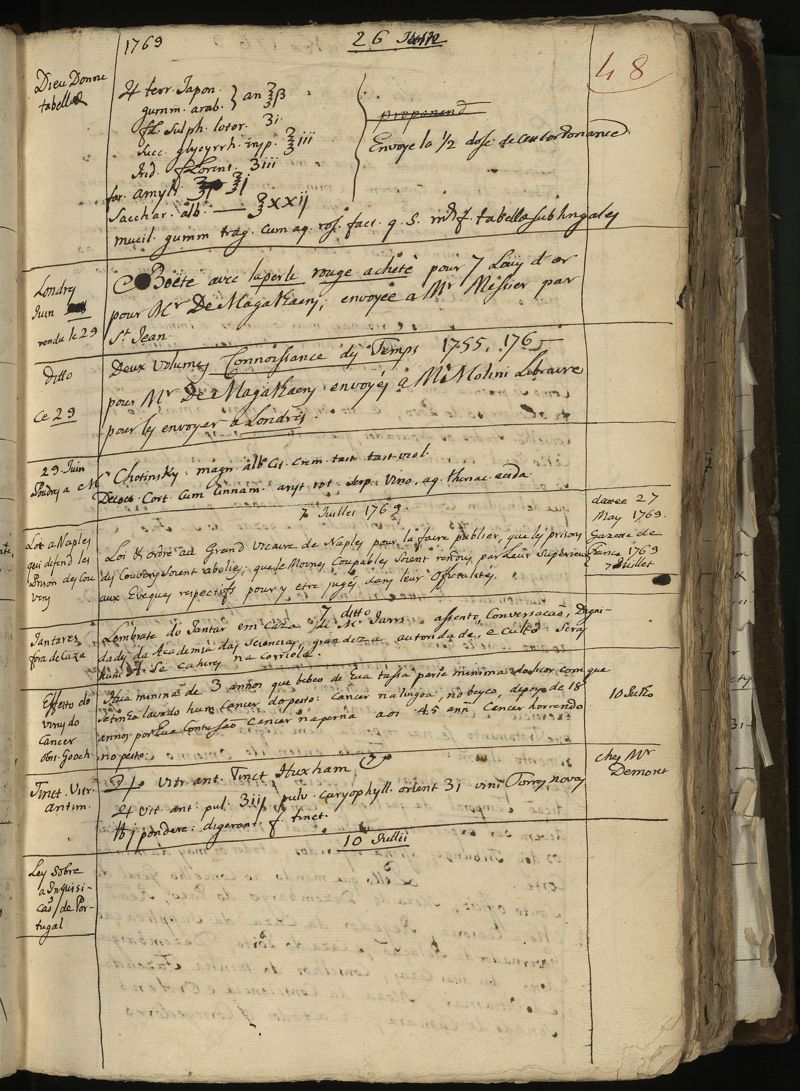 1769
26 Juin
48
Dieu Donné
tabellæ
♃ terr. Japon.
gumm. arab. } an ℥β
fl. sulph. lotor. ʒi
succ. glycyrrh. insp. ℥iii
Rid. fl Lorent. ʒiii
far. amyli ℥j
Sacchar. alb. — ℥xxij
mucil. gumm trag. cum aq. ros. fact. q. s. f. tabellæ sublingales
proponend
Envoye la 1/2 dose de ordonance
Londres
Juin
rendu le 29
Boëte avec la perle rouge acheté pour 7 Louis d'or
pour Mr De Magalhaens; envoyée a Mr Messier par
St Jean.
ditto
Ce 29
Deux volumes Connoissance des Temps 1755, 176
pour Mr De Magalhaens envoyés a Mr Molini Libraire
pour les envoyer a Londres.
29. Juin
Poudres a Mr Chotinsky: magn. alb. Cis. crem. tart. tart. viol.
Decoct. Cort. cum cinnam. aryt. tot. Serp. vino, aq. theriac.
7 Juillet 1769
Loi a Naples
qui defend les
Prison des Cou
vens
Loi & ordre au Grand Vicaire de Naples pour la faire publier, que les prisons
des Couvens soient abolies; que le Moines Coupables soient rendus par leur Superieur
aux Eveques respectifs pour y etre jugés dans leur Officialités.
datée 27
May 1769.
Gazette de
France 1769
7 Juillet
7 ditto
Jantares
fora de Caza
Lembrate do Jantar em caza de Mr Jarri: assento, Conversaçaõ, Digni-
dades da Academia das Sciencias, grandeza autoridade, e culto: Seras
hum A. se cahires na corriola.
Effeito do
virus do
Cancer
obs. Gooch
Hua menina de 3 annos que bebeo de hua tassa parte minima do licor com que
se tinha lavado hum cancer do peito: cancer na lingoa, no beyço, depois de 18
annos por hua Contusaõ cancer na perna aos 45 ann. Cancer horrendo
no peito.
10 Julho
Tinct. Vitr.
antim.
Vitr ant. Tinct Huxham
♃ vit. ant. pul. ʒiij pulv. caryophyll. orient ʒi vini Torres novas
℔j pondere: digerant. f. tinct.
ches Mr
Demont
10 Julii
Ley sobre
a Inquisi-
çaõ de Por-
tugal